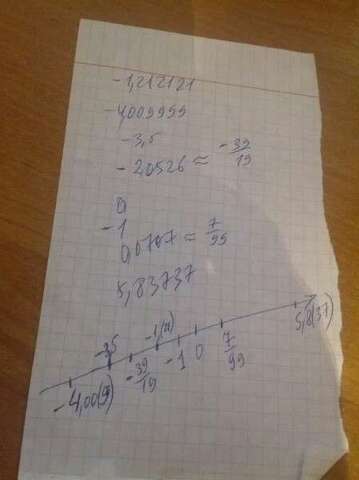 -1,212121
-4,009999
-3,5
-2,0526 ≈ -39/19
0
-1
0,0707 ≈ 7/99
5,83737
-4,00(9) -3,5 -39/19 -1,(21) -1 0 7/99 5,8(37)